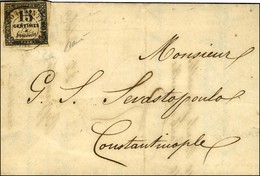 15
CENTIMES
Monsieur
G. S. Sevastopoulo
Constantinople